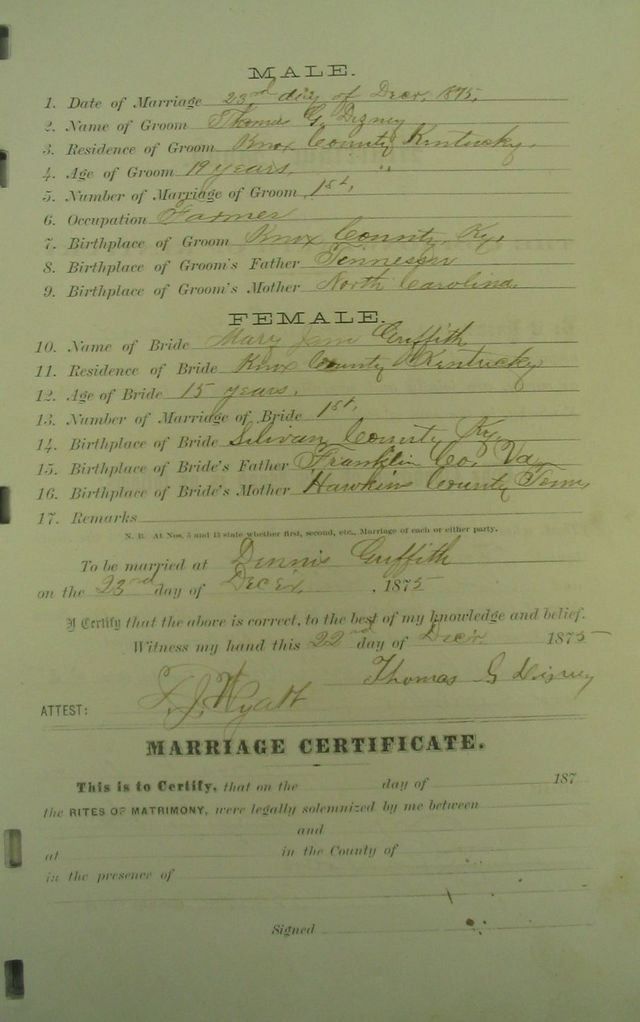 MALE.
1. Date of Marriage 23rd day of Decr. 1875.
2. Name of Groom Thomas G. Dizney
3. Residence of Groom Knox County Kentucky.
4. Age of Groom 19 years. "
5. Number of Marriage of Groom 1st.
6. Occupation Farmer
7. Birthplace of Groom Knox County, Ky.
8. Birthplace of Groom's Father Tennessee
9. Birthplace of Groom's Mother North Carolina.
FEMALE.
10. Name of Bride Mary Jane Griffith
11. Residence of Bride Knox County Kentucky
12. Age of Bride 15 years.
13. Number of Marriage of Bride 1st.
14. Birthplace of Bride County Ky.
15. Birthplace of Bride's Father Franklin Co, Va
16. Birthplace of Bride's Mother Hawkins County Tenn,
17. Remarks
N. B. At Nos. 5 and 13 state whether first, second, etc., Marriage of each or either party.
To be married at Dennis Griffith
on the 23rd day of , 1875
I Certify that the above is correct, to the best of my knowledge and belief.
Witness my hand this 22nd day of Decr. 1875
Thomas G Dizney
ATTEST: Wyatt
MARRIAGE CERTIFICATE.
This is to Certify, that on the day of 187
the RITES OF MATRIMONY, were legally solemnized by me between
and
at in the County of
in the presence of
Signed